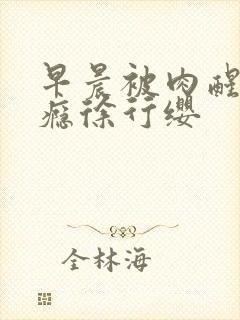 早晨被肉醒
瘾徐行缨
全林海